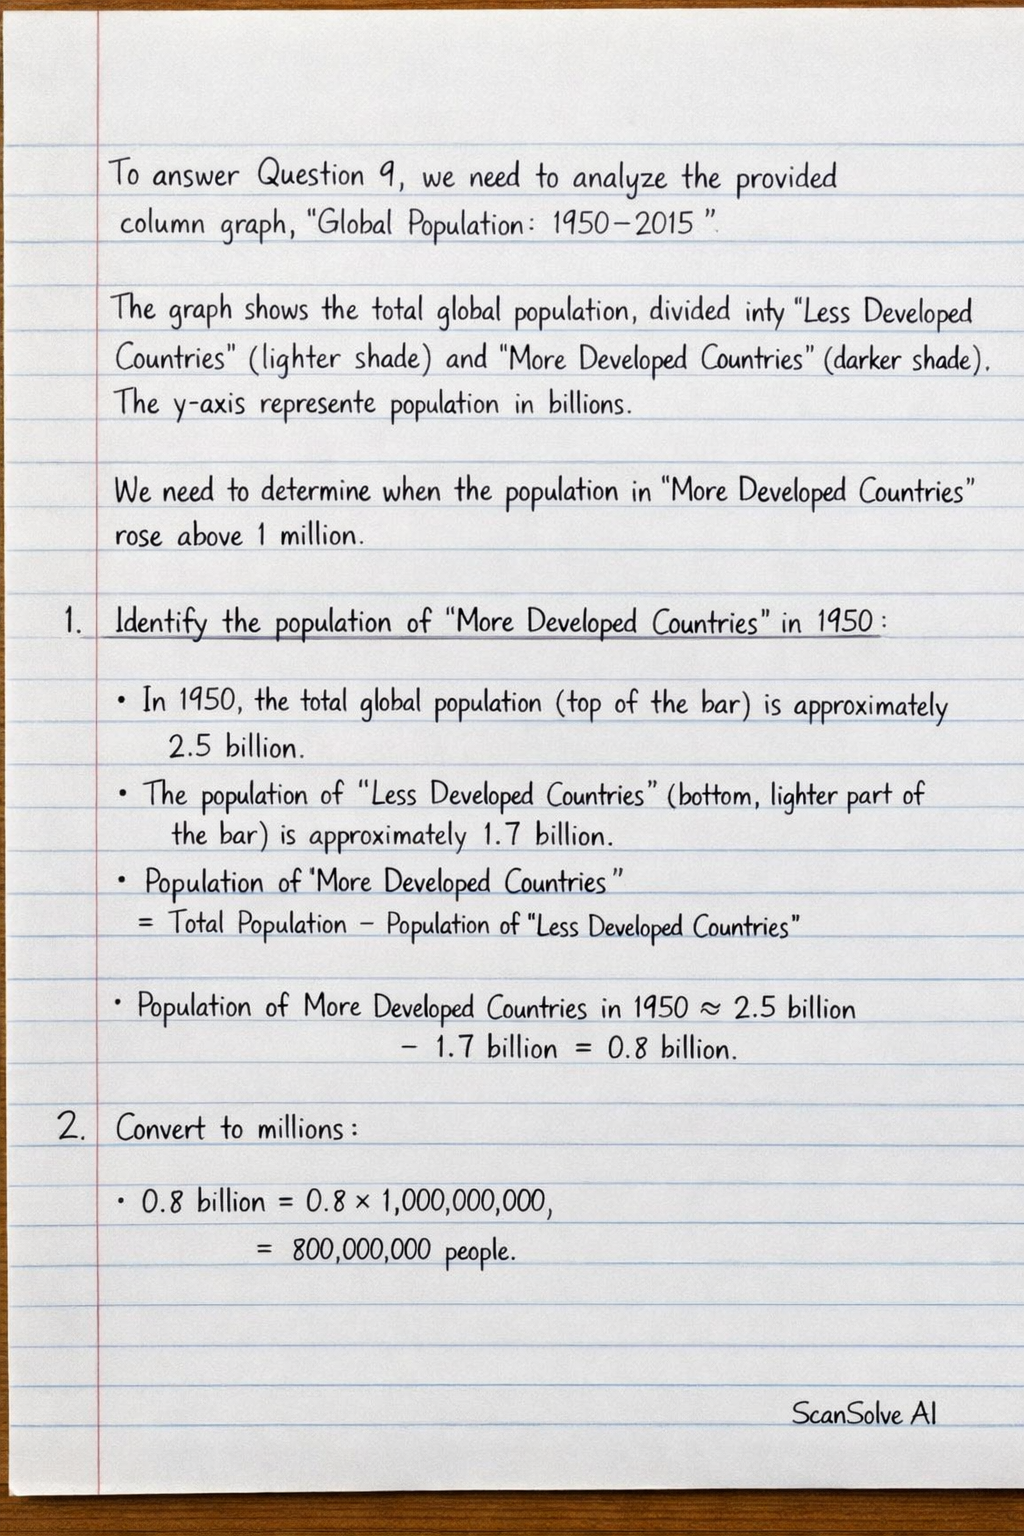 To answer Question 9, we need to analyze the provided
column graph, "Global Population: 1950–2015".
The graph shows the total global population, divided inty "Less Developed
Countries" (lighter shade) and "More Developed Countries" (darker shade).
The y-axis represente population in billions.
We need to determine when the population in "More Developed Countries"
rose above 1 million.
1. Identify the population of "More Developed Countries" in 1950:
• In 1950, the total global population (top of the bar) is approximately
2.5 billion.
• The population of "Less Developed Countries" (bottom, lighter part of
the bar) is approximately 1.7 billion.
• Population of 'More Developed Countries"
= Total Population – Population of "Less Developed Countries"
• Population of More Developed Countries in 1950 ≈ 2.5 billion
– 1.7 billion = 0.8 billion.
2. Convert to millions:
• 0.8 billion = 0.8 × 1,000,000,000,
= 800,000,000 people.
ScanSolve AI